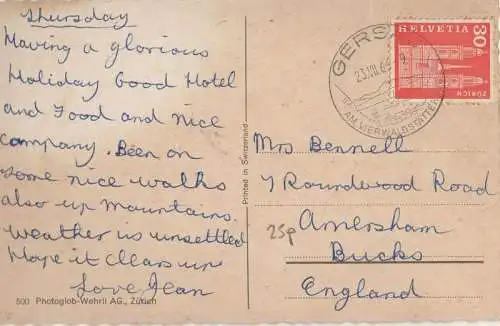 Thursday
Having a glorious
Holiday Good Hotel
and Food and nice
company. Been on
some nice walks
also up mountains.
weather is unsettled
Hope it clears up
Love Jean
500 Photoglob-Wehrli AG., Zürich
Printed in Switzerland
GERS
23.VII.6
AM VIERWALDSTÄTTER
HELVETIA
30
ZÜRICH
Mrs Bennell
7 Roundwood Road
25p
Amersham
Bucks
England